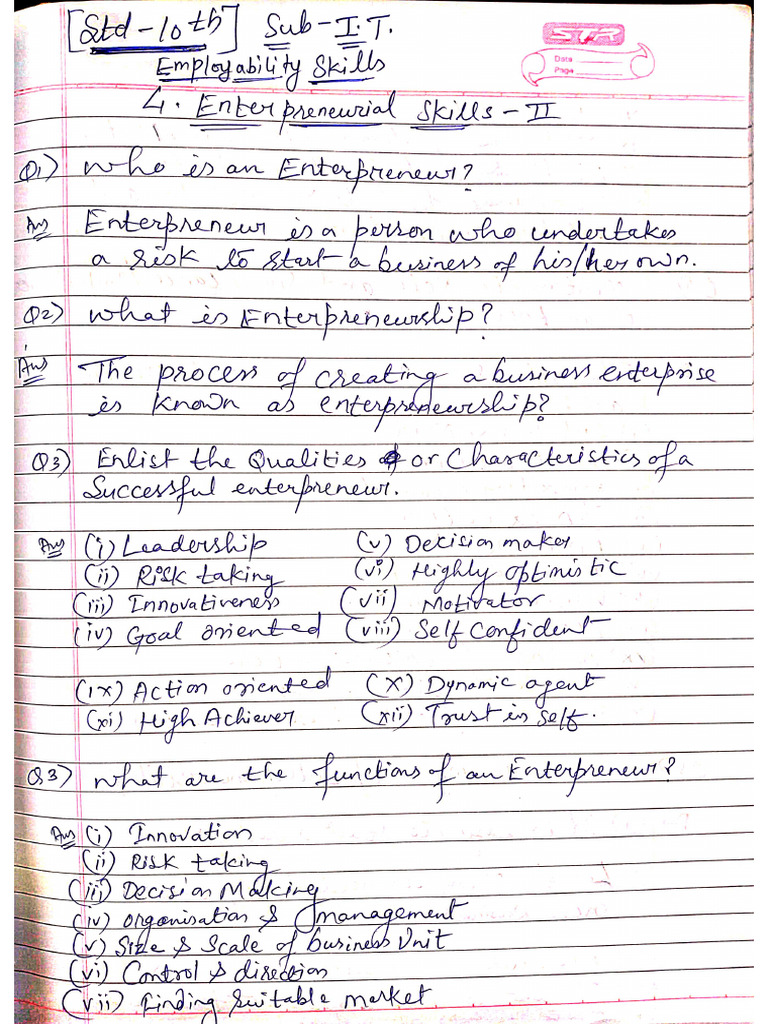 [Std-10th] Sub-I.T.
STR
Employability Skills
Date
Page
4. Enterpreneurial Skills-II
Q1) Who is an Enterpreneur?
Ans Enterpreneur is a person who undertakes
a risk to start a business of his/her own.
Q2) What is Enterpreneurship?
Ans The process of creating a business enterprise
is known as enterpreneurship?
Q3) Enlist the Qualities or Characteristics of a
Successful enterpreneur.
Ans (i) Leadership (v) Decision maker
(ii) Risk taking (vi) Highly optimistic
(iii) Innovativeness (vii) Motivator
(iv) Goal oriented (viii) Self Confident
(ix) Action oriented (x) Dynamic agent
(xi) High Achiever (xii) Trust in self.
Q3) What are the functions of an Enterpreneur?
Ans (i) Innovation
(ii) Risk taking
(iii) Decision Making
(iv) organisation & management
(v) Size & Scale of business Unit
(vi) Control & direction
(vii) Finding suitable market